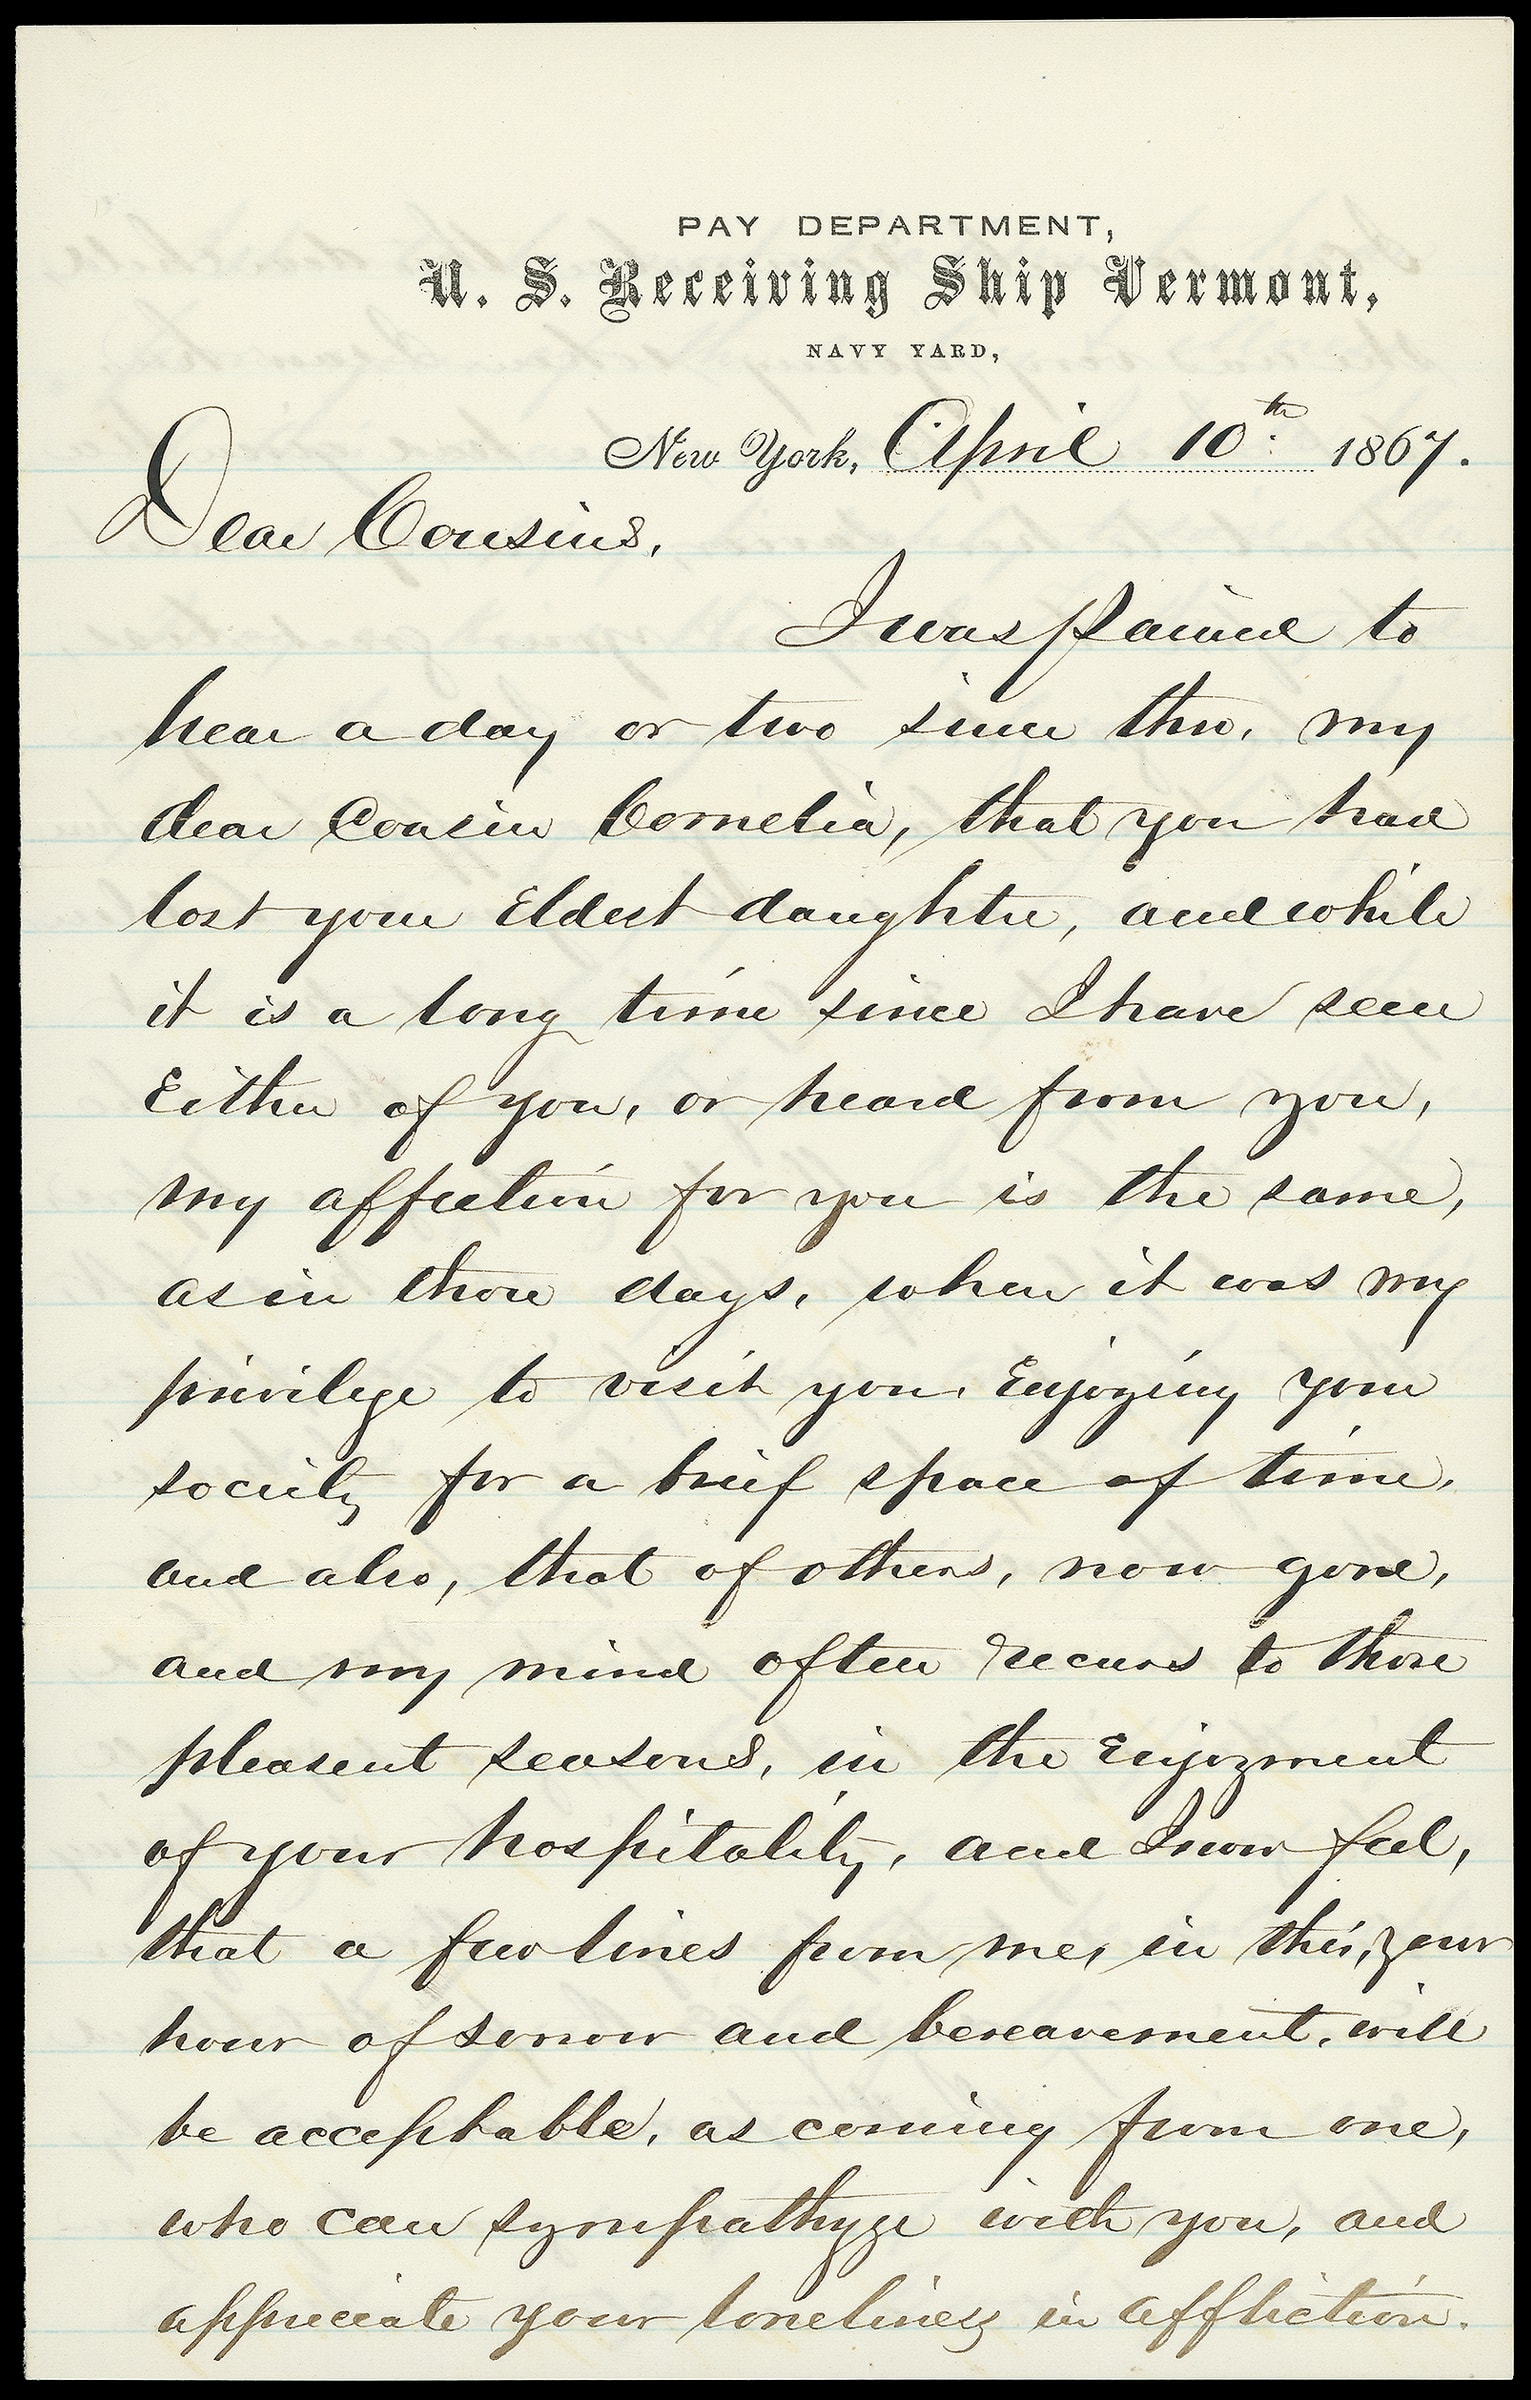 PAY DEPARTMENT,
U. S. Receiving Ship Vermont,
NAVY YARD,
New York, April 10th 1867.
Dear Cousins,
I was pained to
hear a day or two since thro, my
dear Cousin Cornelia, that you had
lost your Eldest daughter, and while
it is a long time since I have seen
Either of you, or heard from you,
my affection for you is the same,
as in those days, when it was my
privilege to visit you, Enjoying your
society for a brief space of time,
and also, that of others, now gone,
and my mind often recurs to those
pleasent seasons, in the Enjoyment
of your hospitality, and I now feel,
that a few lines from me, in this, your
hour of sorrow and bereavement, will
be acceptable, as coming from one,
who can sympathyze with you, and
appreciate your loneliness in affliction.